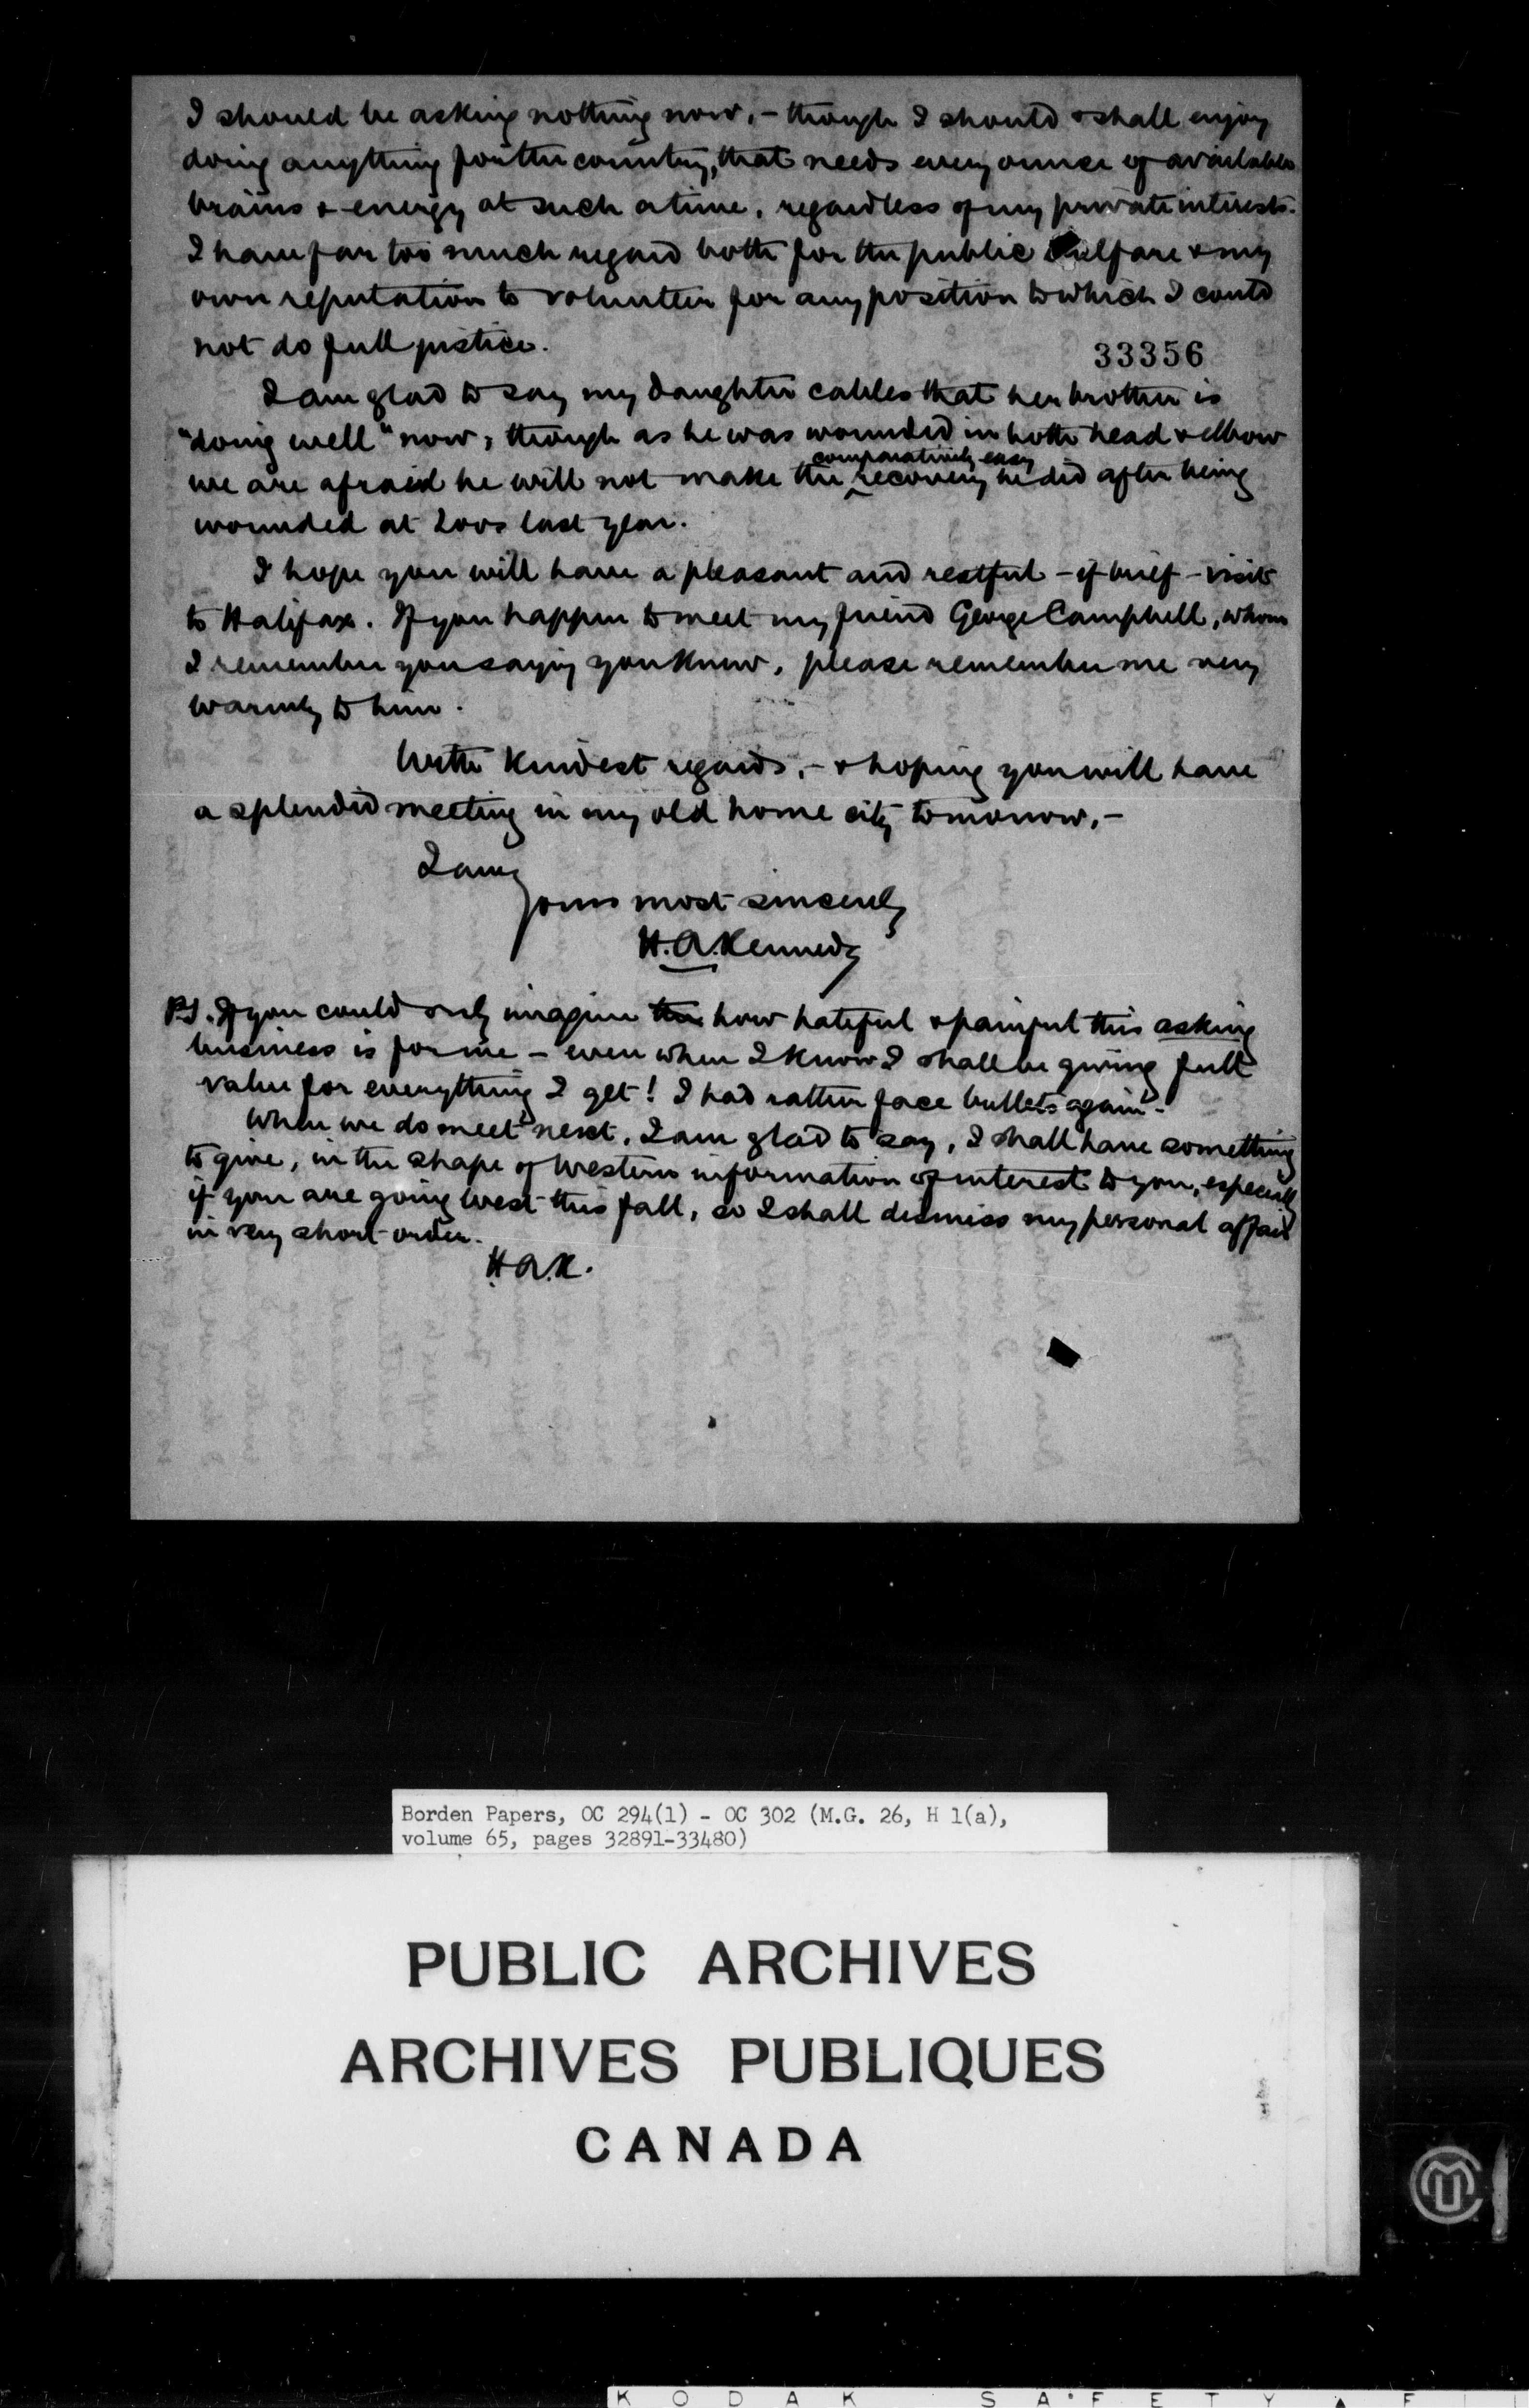 I should be asking nothing now, - though I should & shall enjoy
doing anything for the country, that needs every ounce of available
brains & energy at such a time, regardless of my private interests.
I have far too much regard both for the public welfare & my
own reputation to volunteer for any position to which I could
not do full justice.
33356
I am glad to say my daughter cables that her brother is
"doing well" now; though as he was wounded in both head & elbow
we are afraid he will not make the comparatively easy recovery he did after being
wounded at Loos last year.
I hope you will have a pleasant and restful - if brief - visit
to Halifax. If you happen to meet my friend George Campbell, whom
I remember you saying you knew, please remember me very
warmly to him.
With kindest regards, - & hoping you will have
a splendid meeting in my old home city tomorrow, -
I am
yours most sincerely
H. A. Kennedy
P.S. If you could only imagine how hateful & painful this asking
business is for me - even when I know I shall be giving full
value for everything I get! I had rather face bullets again.
When we do meet next, I am glad to say, I shall have something
to give, in the shape of Western information of interest to you, especially
if you are going West this fall, so I shall dismiss my personal affair
in very short order.
H.A.K.
Borden Papers, OC 294(1) - OC 302 (M.G. 26, H 1(a),
volume 65, pages 32891-33480)
PUBLIC ARCHIVES
ARCHIVES PUBLIQUES
CANADA
KODAK SAFETY